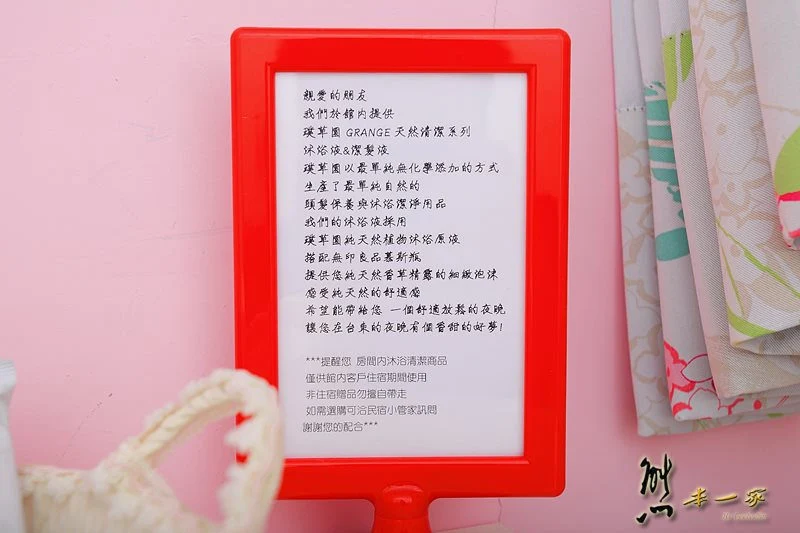 親愛的朋友
我們於館內提供
璞草園 GRANGE 天然清潔系列
沐浴液&潔髮液
璞草園以最單純無化學添加的方式
生產了最單純自然的
頭髮保養與沐浴潔淨用品
我們的沐浴液採用
璞草園純天然植物沐浴原液
搭配無印良品慕斯瓶
提供您純天然香草精露的細緻泡沫
感受純天然的舒適感
希望能帶給您 一個舒適放鬆的夜晚
讓您在台東的夜晚有個香甜的好夢!
***提醒您 房間內沐浴清潔商品
僅供館內客戶住宿期間使用
非住宿贈品勿擅自帶走
如需選購可洽民宿小管家訊問
謝謝您的配合***
熊
本一家